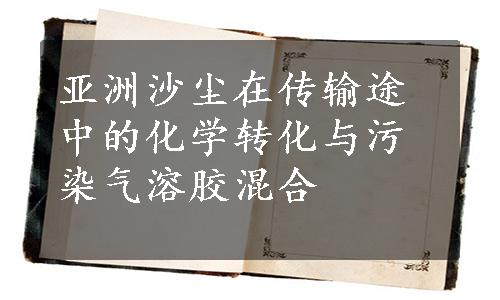 亚洲沙尘在传输途
中的化学转化与污
染气溶胶混合